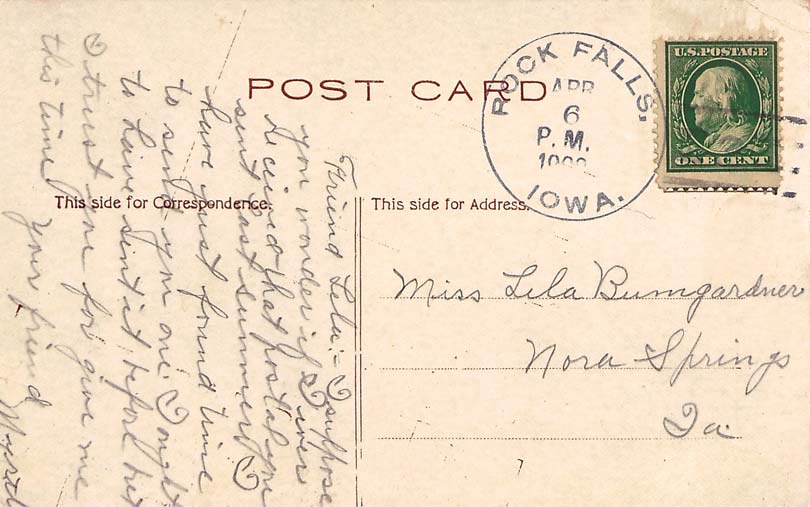 POST CARD
ROCK FALLS,
APR
6
P. M.
IOWA.
U.S. POSTAGE
ONE CENT
This side for Correspondence.
This side for Address.
Friend Lela:- I suppose
you wonder if I ever
received that postal you
sent last summer. I
have just found time
to send you one. I ought
to have sent it before but
I trust you for give me
this time
your friend
Miss Lela Bumgardner
Nora Springs
Ia.